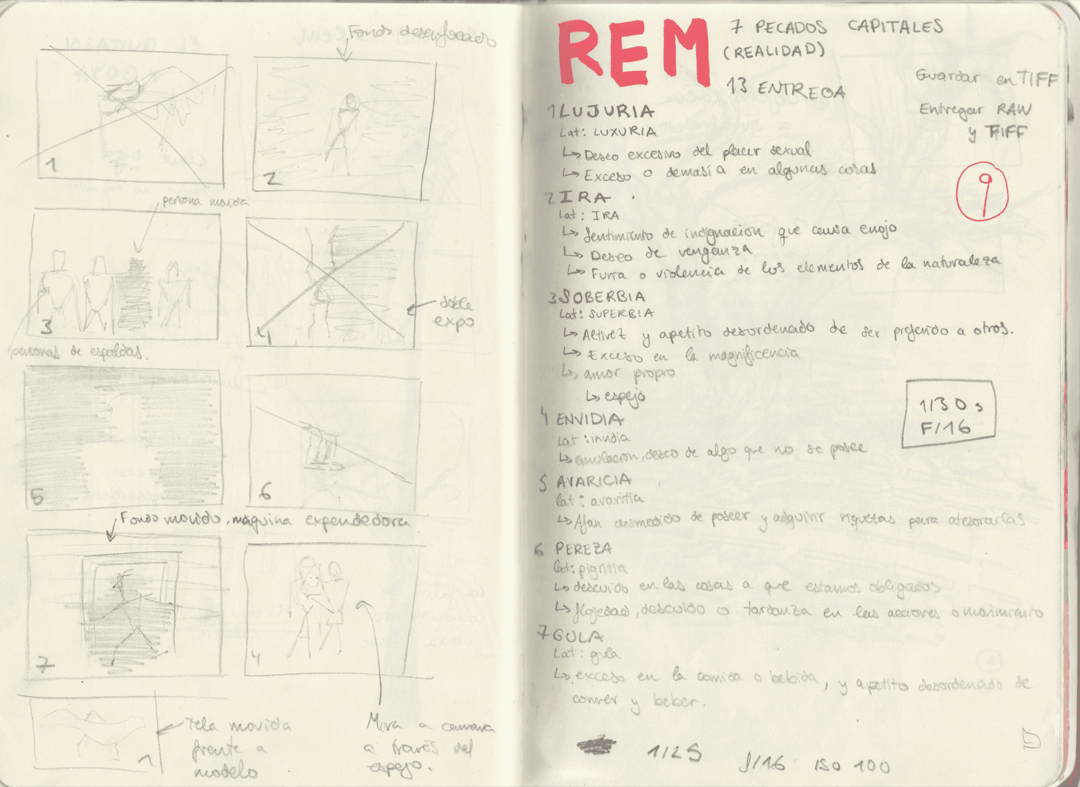 Fondo desenfocado
1
2
persona movida
3
personas de espaldas.
4
doble
expo
5
6
Fondo movido, máquina expendedora
7
4
1
Tela movida
frente a
modelo
Mira a camara
a través del
espejo.
REM
7 PECADOS CAPITALES
(REALIDAD)
13 ENTREGA
Guardar en TIFF
Entregar RAW
y TIFF
9
1 LUJURIA
Lat: LUXURIA
↳ Deseo excesivo del placer sexual
↳ Exceso o demasía en algunas cosas
2 IRA
Lat: IRA
↳ Sentimiento de indignacion que causa enojo
↳ Deseo de venganza
↳ Furia o violencia de los elementos de la naturaleza
3 SOBERBIA
Lat: SUPERBIA
↳ Altivez y apetito desordenado de ser preferido a otros.
↳ Exceso en la magnificencia
↳ amor propio
↳ espejo
1/30 s
F/16
4 ENVIDIA
Lat: invidia
↳ emulacion, deseo de algo que no se posee
5 AVARICIA
Lat: avaritia
↳ Afan desmedido de poseer y adquirir riquezas para atesorarlas
6 PEREZA
Lat: pigritia
↳ descuido en las cosas a que estamos obligados
↳ flojedad, descuido o tardanza en las acciones o movimiento
7 GULA
Lat: gula
↳ exceso en la comida o bebida, y apetito desordenado de
comer y beber.
1/25 f/16 ISO 100